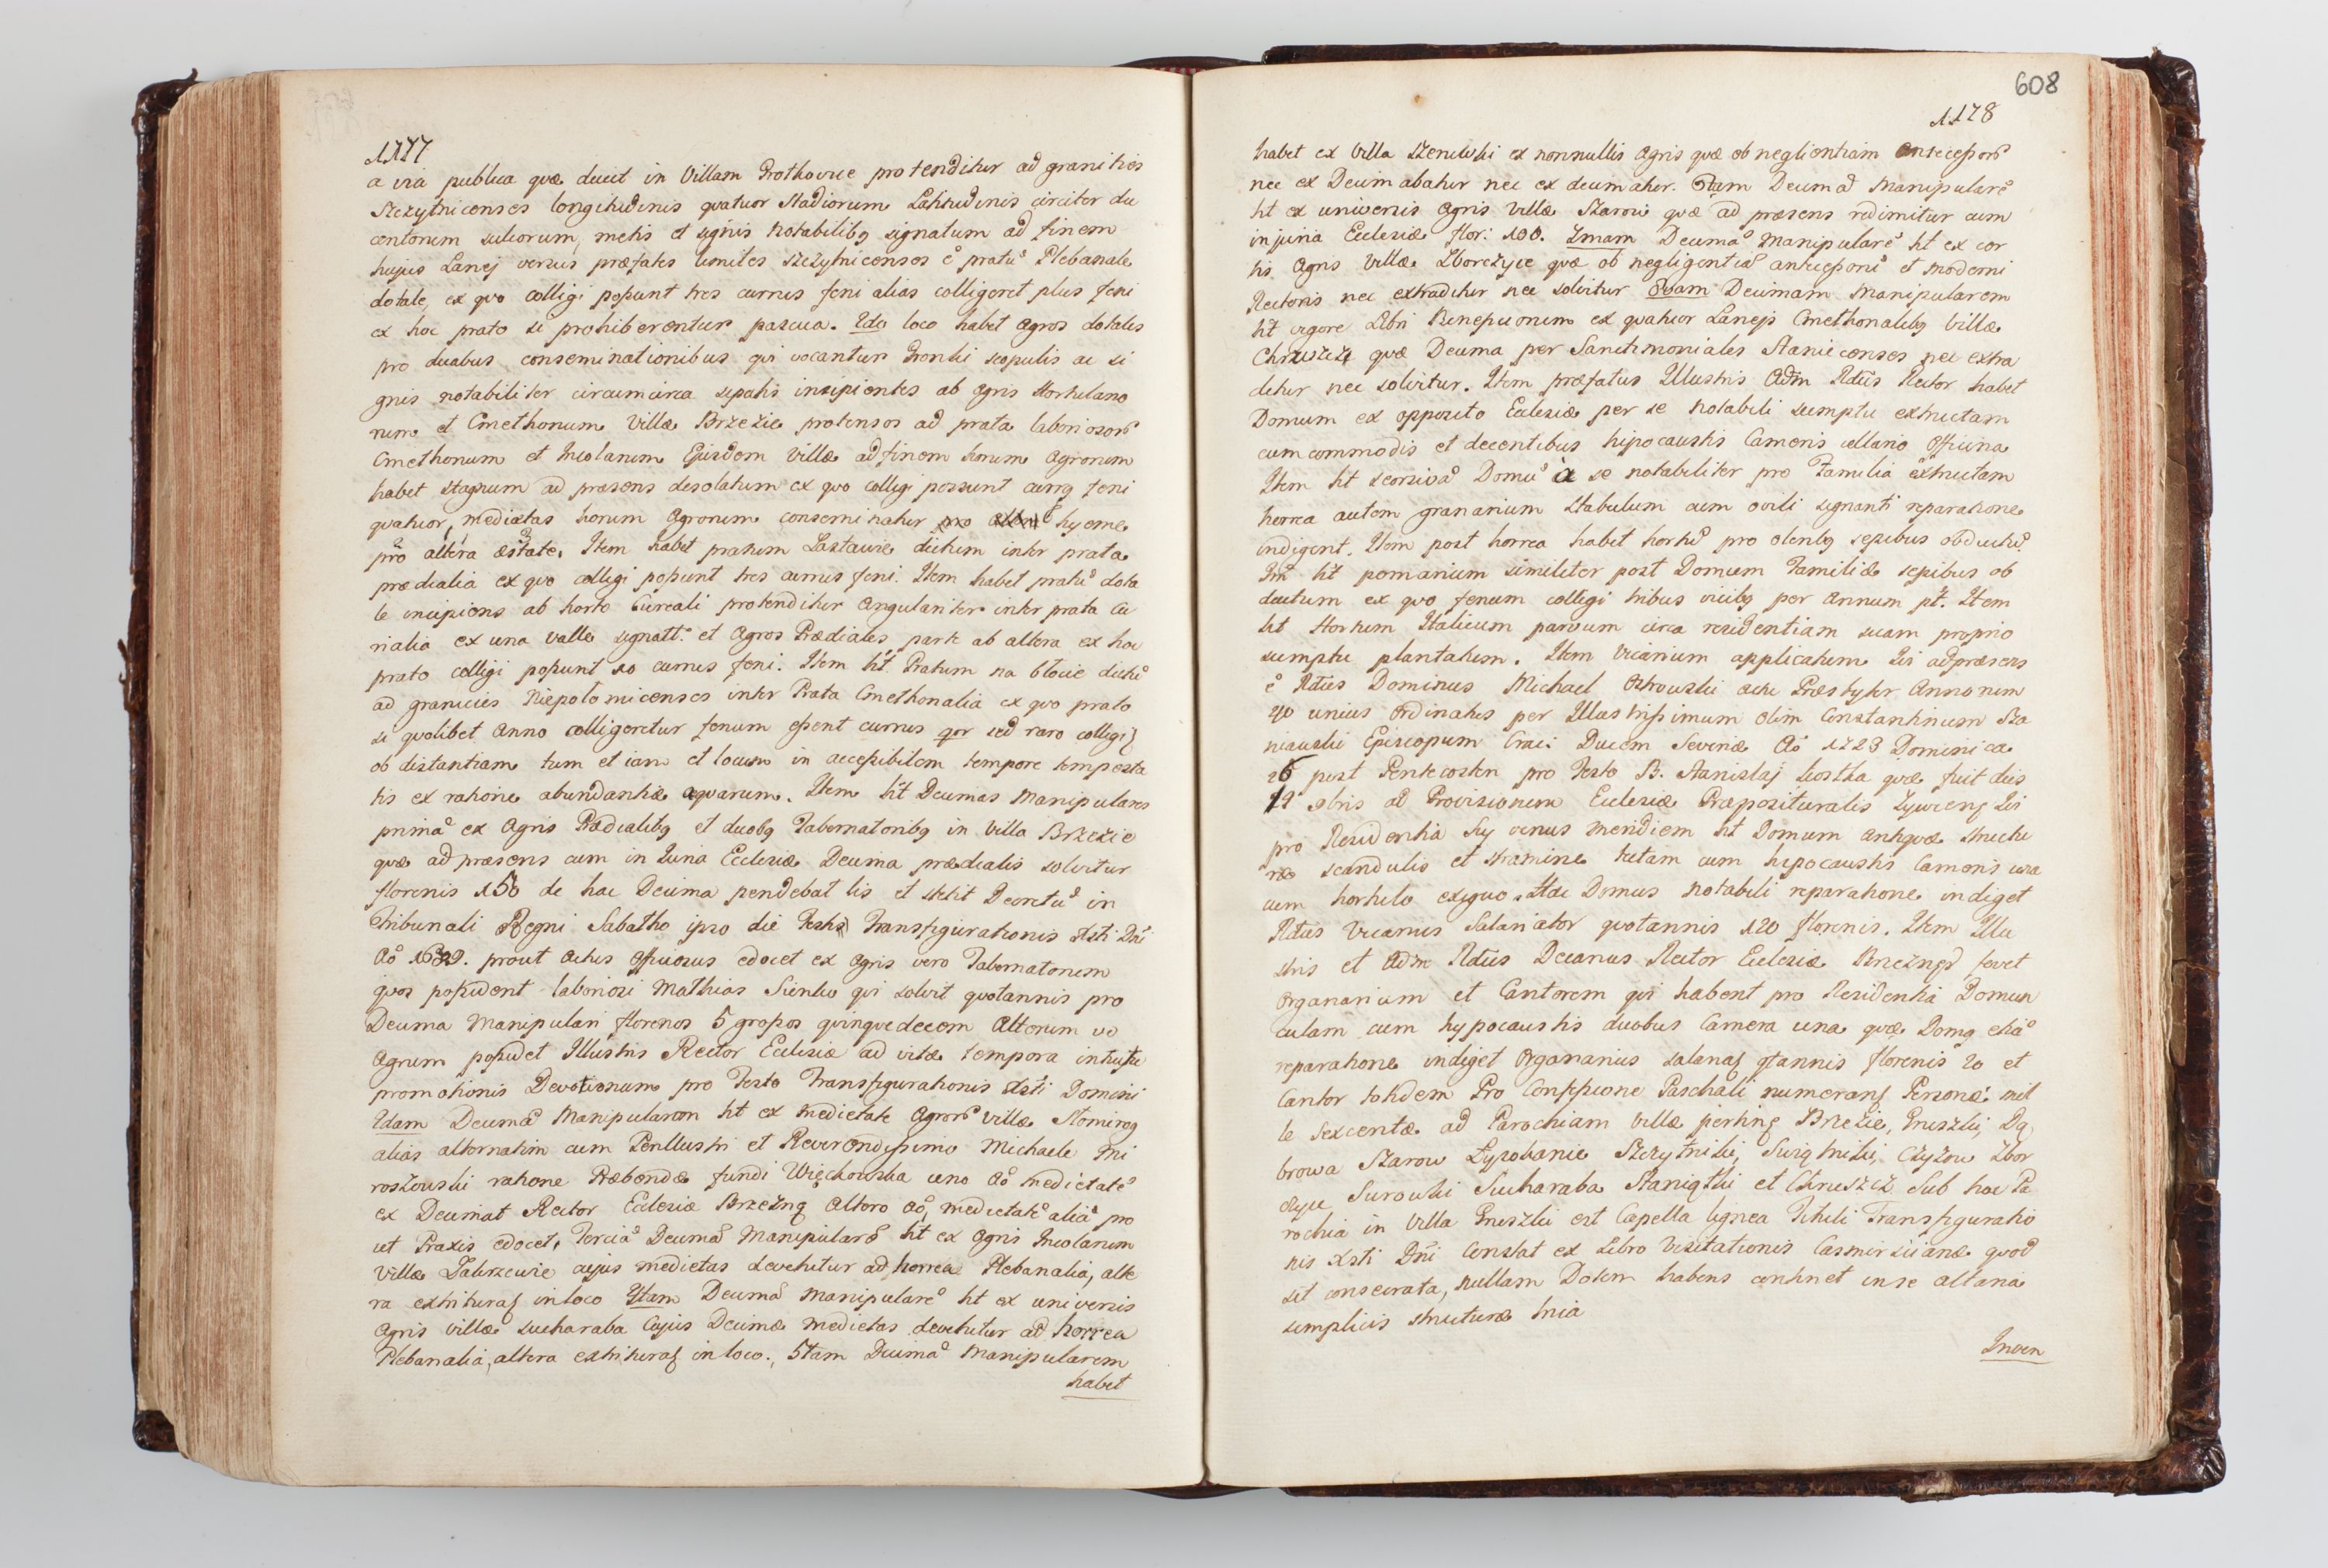 1177
a via publica quæ ducit in Villam Grothowice protenditur ad granities
Szczytnicenses longitudinis quatuor Stadiorum Latitudinis circiter du
centorum sulcorum, metis et signis notabilibq signatum ad finem
hujus Lanej versus præfatos limites szczytnicenses ẽ pratũ Plebanale
dotale, ex quo colligi possunt tres currus feni alias colligeret plus feni
ex hoc prato si prohiberentur pascua. 2do loco habet agros dotales
pro duabus conseminationibus qui vocantur scopulis ac si
gnis notabiliter circumcirca sepatis incipientes ab agris Hortulano
rum et Cmethonum Villæ Brzezie protensos ad prata laboriosorũ
Cmethonum et Incolarum Ejusdem Villæ ad finem horum agrorum
habet stagnum ad præsens desolatum ex quo colligi possunt currq feni
quatuor, medietas horum agrorum conseminatur pro hyeme
pro altera æstate. Item habet pratum Lastawie dictum inter prata
prædialia ex quo colligi possunt tres currus feni. Item habet pratũ dota
le incipiens ab horto Curcali protenditur angulariter inter prata Cu
rialia ex una valle signatt. et agros Prædiales parte ab altera ex hoc
prato colligi possunt 10 currus feni. Item ht Pratum na blocie dictũ
ad granicies Niepolomicenses inter Prata Cmethonalia ex quo prato
si quolibet anno colligeretur fenum essent currus qor sed raro colligi
ob distantiam tum etiam et locum in accessibilem tempore tempesta
tis ex ratione abundantiæ aquarum. Item ht Decimas Manipulares
primã ex agris Prædialibq et duobq Tabernatoribq in Villa Brzezie
quæ ad præsens cum in Iuria Ecclesiæ Decima prædialis solvitur
florenis 150 de hac Decima pendebat lis et stetit Decretũ in
Tribunali Regni Sabatho ipso die Festi Transfigurationis Xsti Dñi
Aõ 1689. prout actus Offuosus edocet ex agris vero Tabernatorum
quos possident laboriosi Mathias Sienko qui solvit quotannis pro
Decima Manipulari florenos 5 grossos quinquedecem Alterum vo
agrum possidet Illustris Rector Ecclesiæ ad vitæ tempora intuitu
promotionis Devotionum pro Festo Transfigurationis Xsti Domini
2dam Decimã Manipularem ht ex medietate agrorũ villæ Stomirog
alias alternatim cum Perillustri et Reverendissimo Michaele Mi
roszowski ratione Præbendæ fundi Więckowska uno Aõ medietatẽ
ex Decimat Rector Ecclesiæ Brzeznę altero aõ, medietatẽ aliã pro
ut Praxis edocet. Terciã Decimã Manipularẽ ht ex agris Incolarum
Villæ Zakrzewie cujus medietas devehitur ad horrea Plebanalia, alte
ra extrituraʃ in loco 4tam Decimã manipularẽ ht ex universis
agris villæ sucharaba Cujus Decimæ medietas devehitur ad horrea
Plebanalia, altera extrituraʃ in loco., 5tam Decimã Manipularem
habet
608
1178
habet ex Villa Szeniwski ex nonnullis agris quæ ob neglientiam antecessorũ
nec ex Decimabatur nec ex decimatur. 6tam Decimã Manipularẽ
ht ex universis agris Villæ Szarow quæ ad præsens redimitur cum
injuria Ecclesiæ flor: 100. 7mam Decimã Manipularẽ ht ex cer
tis agris Villæ Zborczyce quæ ob negligentiã antecessoris et moderni
Rectoris nec extraditur nec solvitur 8vam Decimam Manipularem
ht vigore Libri Beneficiorum ex quatuor Lanejs Cmethonalibq Villæ
Chruszcz quæ Decima per Sanctimoniales Staniecenses nec extra
ditur nec solvitur. Item præfatus Illustris Adm Rdus Rector habet
Domum ex opposito Ecclesiæ per se notabili sumptu extructam
cum commodis et decentibus hipocaustis Cameris cellario Officina
Item ht seorsivã Domũ a se notabiliter pro Familia extructam
horrea autem granarium Stabulum cum ovili signanti reparatione
indigent. Item post horrea habet hortũ pro olenbq sepibus obductũ
Itm ht pomarium similiter post Domum Familiæ sepibus ob
ductum ex quo fenum colligi tribus vicibq per annum pt. Item
ht Hortum Italicum parvum circa residentiam suam proprio
sumptu plantatum. Item Vicarium applicatum sui ad præsens
ẽ Rdus Dominus Michael Ostrowski actu Præsbyter annorum
40 unius ordinatus per Illustrissimum olim Constantinum Sza
niawski Episcopum Crac: Ducem Severiæ Aõ 1723 Dominica
26 post Pentecosten pro Festo B. Stanislaj Kostka quæ fuit dies
 9bris ad Provisionem Ecclesiæ Præposituralis Zywiecnʃ Qui
pro Residentia suj versus meridiem ht Domum antiquæ structu
ræ scandulis et stramine tectam cum hipocaustis Cameris una
cum hortulo exiguo. Hæc Domus notabili reparatione indiget
Rdus Vicarius Salariator quotannis 120 florenis. Item Illu
stris et Adm Rdus Decanus Rector Ecclesiæ Brzeznęs fovet
Organarium et Cantorem qui habent pro Residentia Domun
culam cum hypocaustis duobus Camera una quæ Domq etiã
reparatione indiget Organarius salariaʃ qtannis florenis 20 et
Cantor totidem Pro Confessione Paschali numeranʃ Personæ mil
le sexcentæ ad Parochiam villæ pertinę Brzezie, Gruszki, Dą,
browa Szarow Łysokanie Szczytniki, Swiątniki, Czyzow Zbor
czyce, Surowki Sucharaba Staniątki et Chruszcz Sub hac Pa
rochia in Villa Gruszki est Capella lignea Tituli Transfiguratio
nis Xsti Dñi Constat ex Libro Visitationis Casimirsiianæ quod
sit consecrata, nullam Dotem habens continet in se altaria
simplicis structuræ tria
Inven